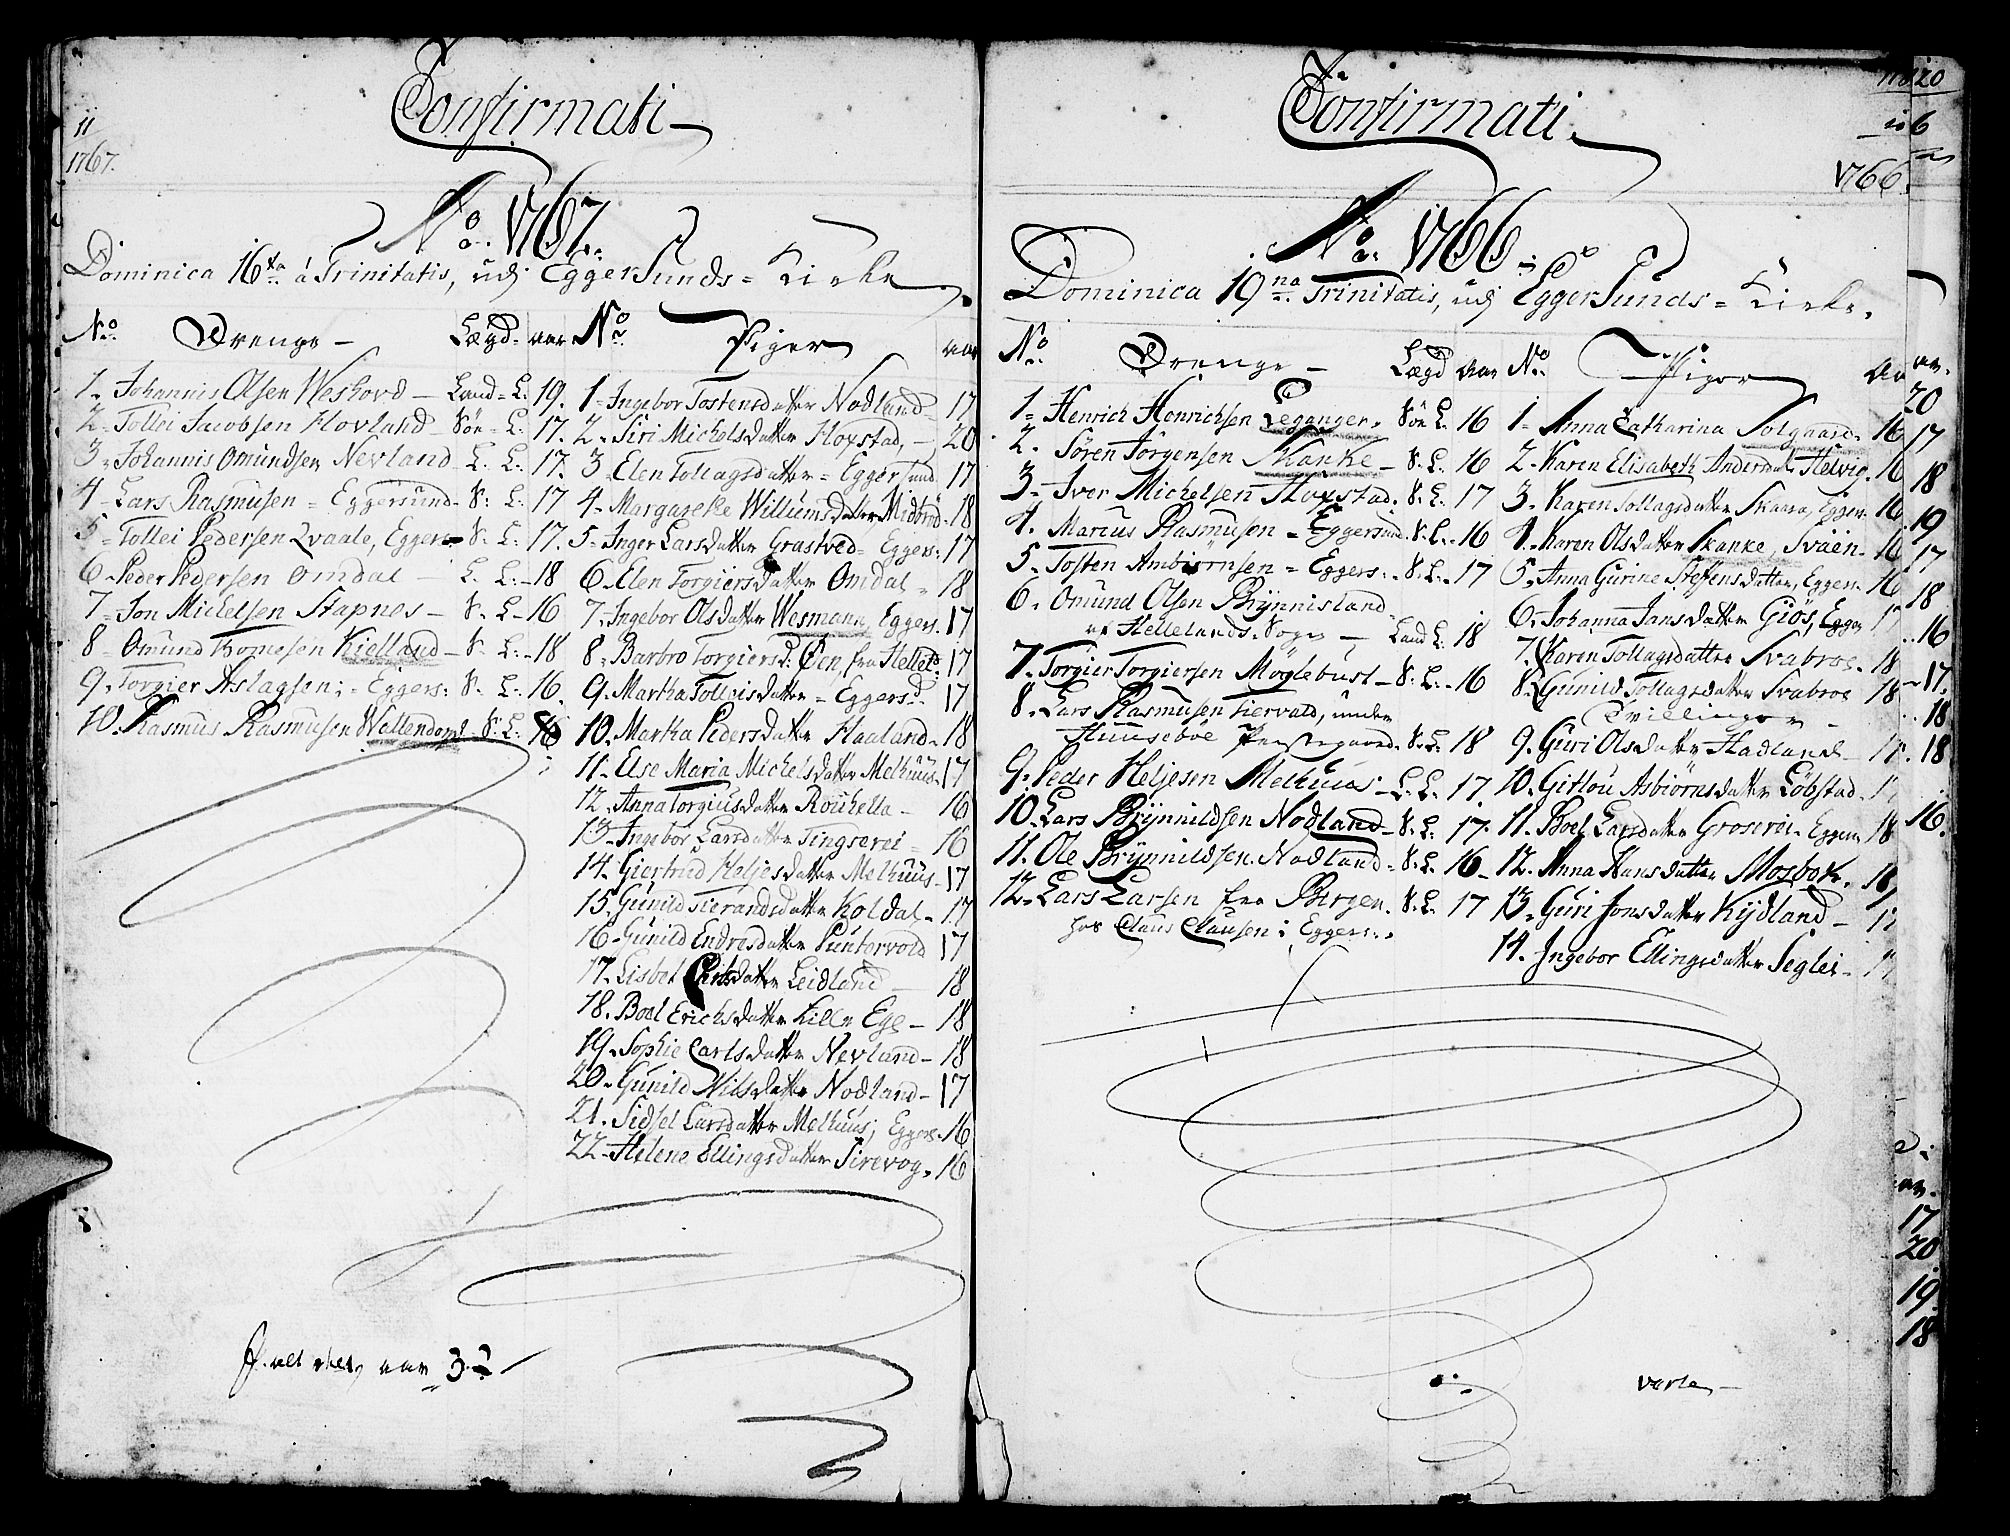 Confirmati
11
1767.
No. 1767.
Dominica 16ta á Trinitatis, udj EggerSunds = Kirke
No. Drenge - Lægd - aar
1. Johannis Olsen Weshovd - Land = L. 19.
2. Tollei Jacobsen Hovland - Sön = L. 17.
3. Johannis Omundsen Nevland - L. L. 17.
4. Lars Rasmusen = Eggersund - S: L: 17
5. Tollei Pedersen Qvaale, Eggers. S: L: 17.
6. Peder Pedersen Omdal - L. L. - 18
7. Jon Michelsen Stapnes - S. L - 16
8. Omund Tomesen Kielland - S. L. - 18
9. Torgier Aslagsen; = Eggers: S. L. 16.
10. Rasmus Rasmusen Wellendorph S. L: 16
No. Piger aar
1. Ingebor Tostensdatter Nodland - 17
2. Siri Michelsdatter Hoxstad, - 20
3. Elen Tollagsdatter = Eggersund 17
4. Margarethe Willumsdatter Midbröd - 18
5. Inger Larsdatter Grastved = Eggers: 17
6. Elen Torgiersdatter Omdal - 18
7. Ingebor Olsdatter Wesmann, Eggers. 17
8. Barbro Torgiersd: Öen, fra Helleld: 17
9. Martha Tolleisdatter = Eggersd. 17
10. Martha Pedersdatter Haaland - 18
11. Else Maria Michelsdatter Melhuus - 17
12. Anna Torgiusdatter Rouhella - 16
13. Ingebor Larsdatter Tingserei = 16
14. Giertrud Heljesdatter Melhuus - 17
15. Gunild Tierandsdatter Koldal - 17
16. Gunild Endresdatter Puntervold 17
17. Lisbet datter Leidland - 18
18. Boel Erichsdatter Lille Ege - 18
19. Sophie Carlsdatter Nevland - 18
20. Gunild Nilsdatter Nodland - 17
21. Sidsel Larsdatter Melhuus; Eggers. 16
22. Helene Ellingsdatter Sirevog - 16
aar 32
Confirmati
1766.
No. 1766
Dominica 19na Trinitatis, udj EggerSunds = Kirke.
No. Drenge - Lægd aar
1. Henrich Henrichsen Leganger. Sön L. 16
2. Sören Jörgensen Skanke - S. L. 16
3. Iver Michelsen Hoxstad. S. L. 17
4. Marcus Rasmusen = Eggersund. S. L. - 16
5. Tosten Ambiörnsen = Eggers: - S. L. - 17
6. Omund Olsen Brynnisland
af Hellelands Sogn - Land L. 18
7. Torgier Torgiersen Möglebust - S. L. - 16
8. Lars Rasmusen Tiervald, under
Huuseböe Præstegaard. S. L. 18
9. Peder Heljesen Melhuus - L. L. 17.
10. Lars Brynnildsen Nodland - S. L. 17.
11. Ole Brynnildsen Nodland = S. L. 16
12. Lars Larsen fra Bergen. S. L. 17
hos Claus Clausen i Eggers:
No. Piger aar
1. Anna Catharina Solgaard - 16
2. Karen Elisabeth Andersdatter Helvig. 16
3. Karen Tollagsdatter Skaara, Eggers. 16
4. Karen Olsdatter Skanke, Svaen. 16
5. Anna Gurine Steffensdatter, Eggers. 16
6. Johanna Jansdatter Giös, Eggers 17
7. Karen Tollagsdatter Svabroe. 18
8. Gunild Tollagsdatter Svabroe 18
Tvillinger -
9. Guri Olsdatter Hadland - 18.
10. Gitlou Asbiörnsdatter Löbstad.
11. Boel Larsdatter Groserei. Eggers 18
12. Anna Hansdatter Mosbek. 18
13. Guri Jonsdatter Kydland -
14. Ingebor Ellingsdatter Seglei -
verte -
20
6
20
17
18
19
17
18
16
17.
18
18
16.
17
20
19
18